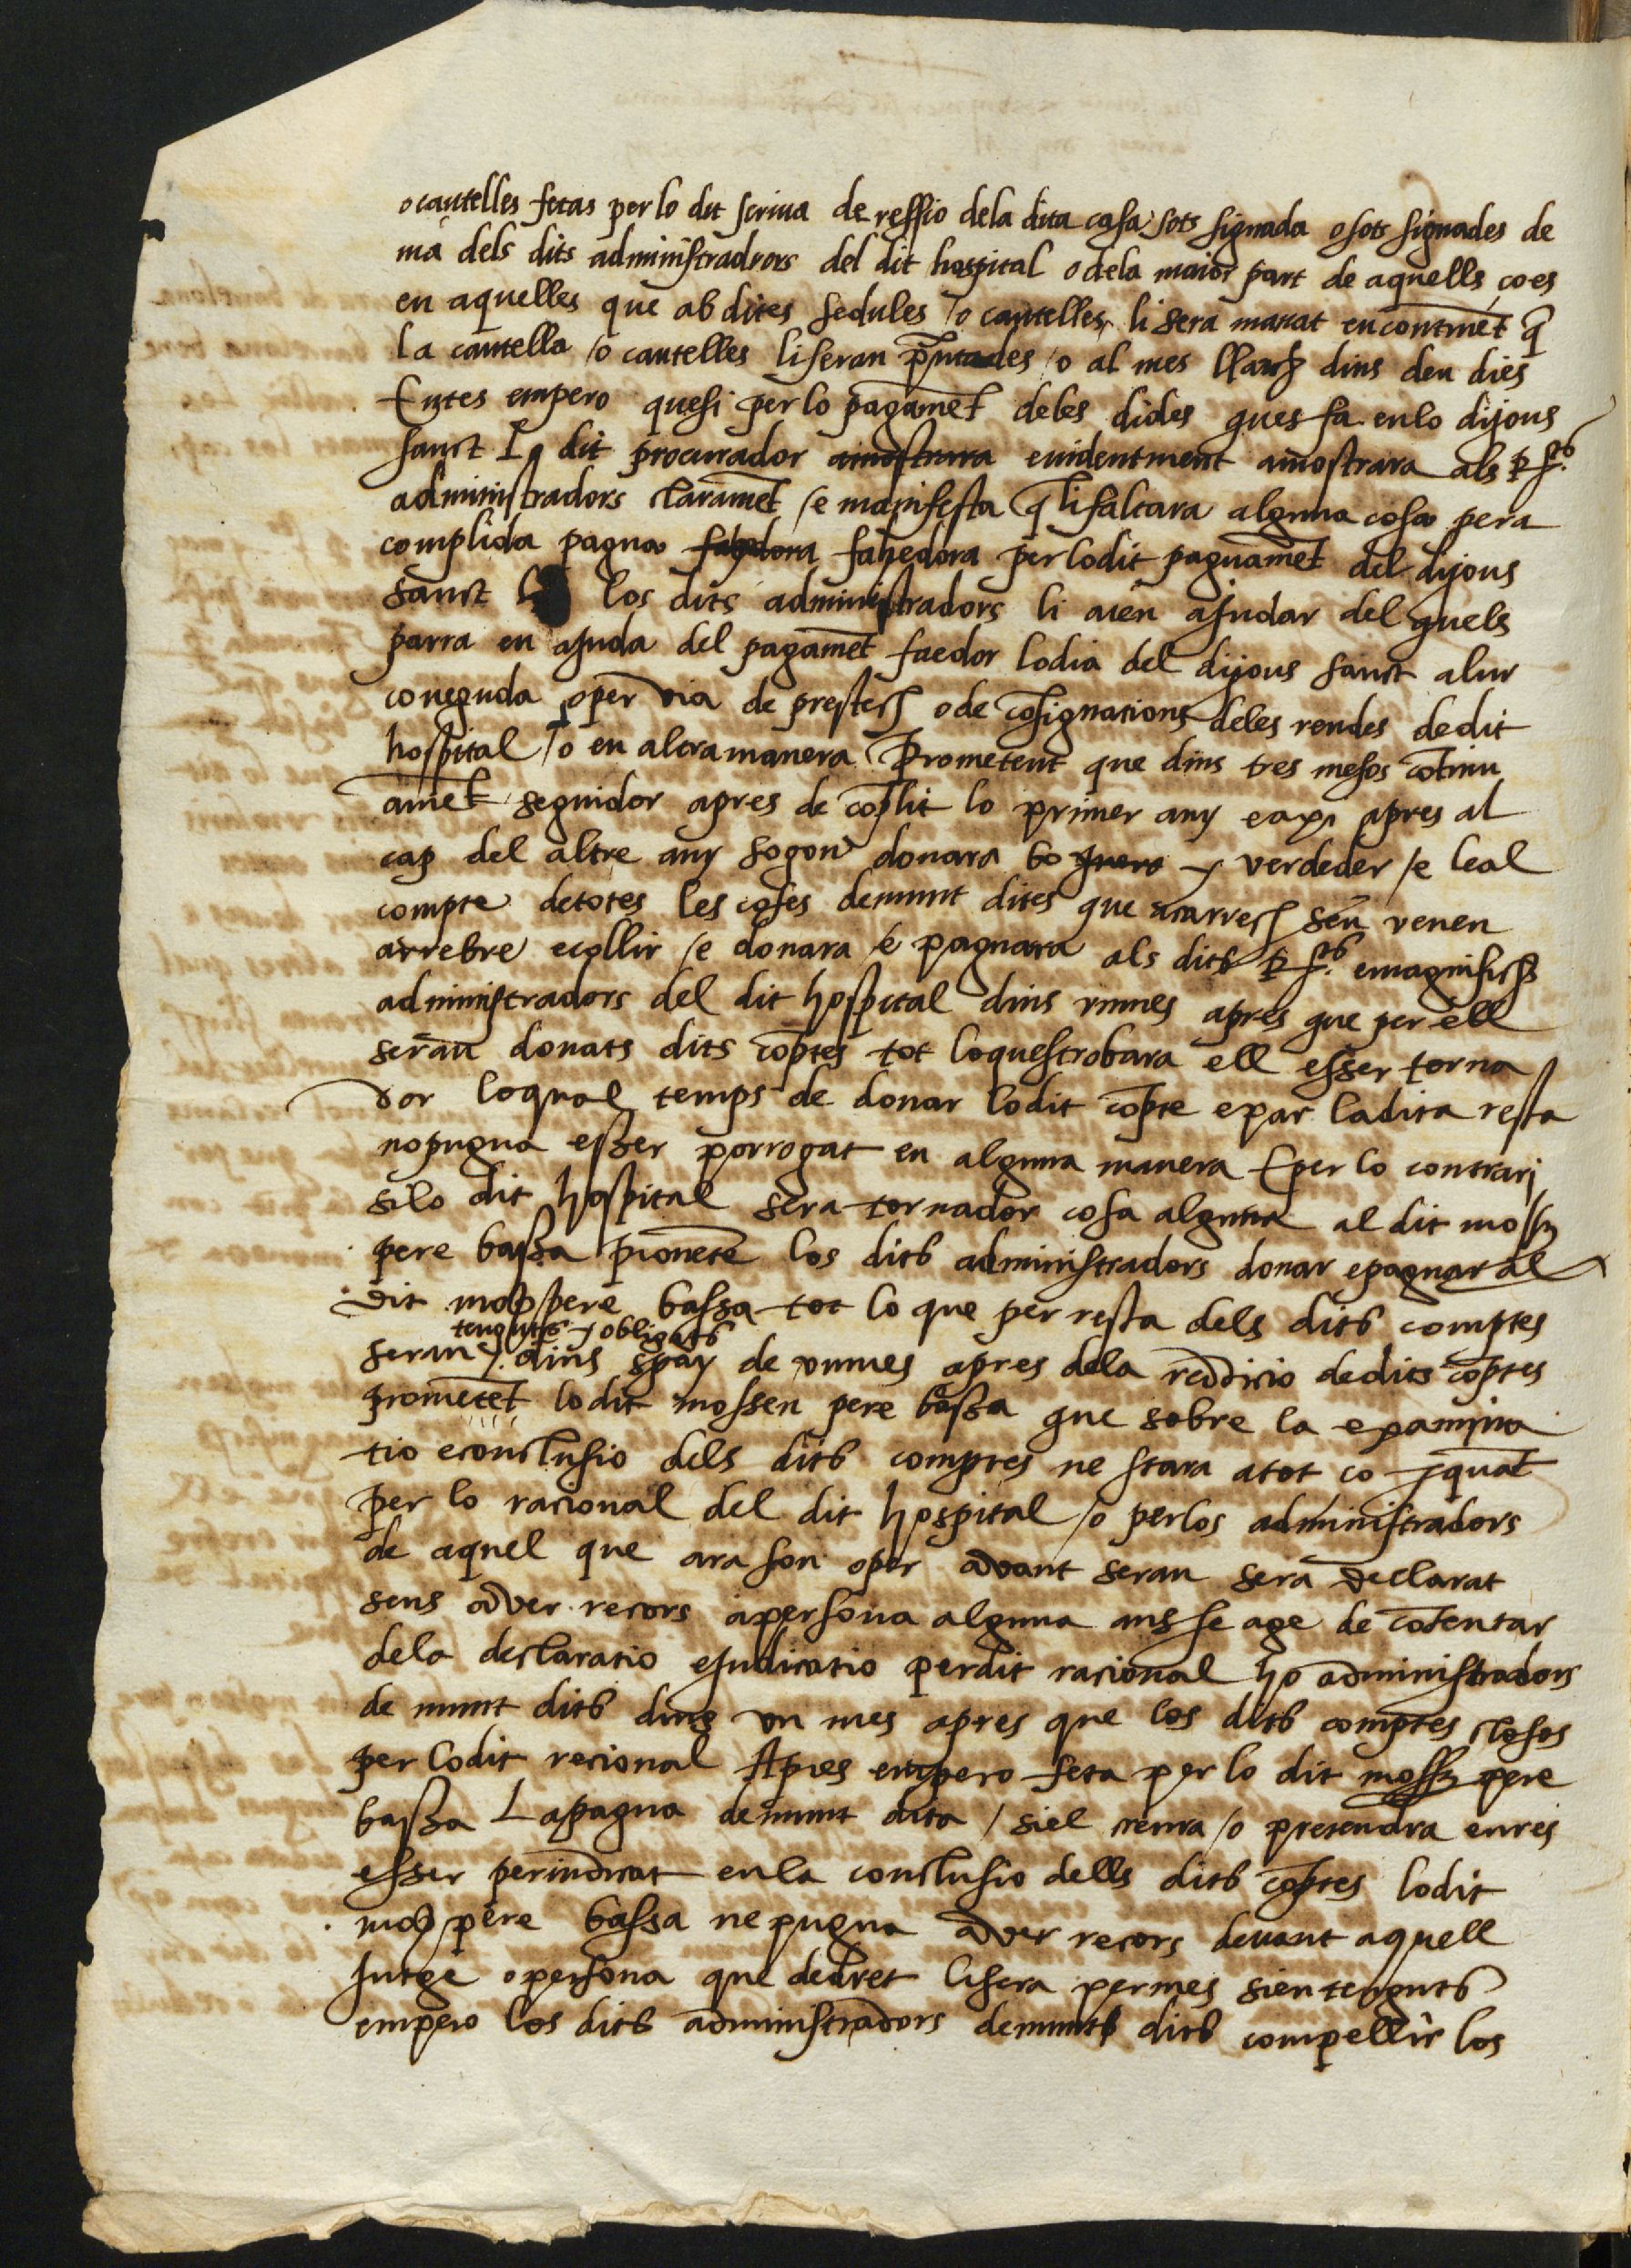 o cautelles fetas per lo dit scriua de reffio dela dita casa sots signada o sots signades de
ma dels dits administradrors del dit hospital o dela maior part de aquells ço es
en aquelles que ab dites sedules /o cautelles li sera manat encontinẽt q̃
la cautella /o cautelles li seran p̃ntades /o al mes llarch dins deu dies
Entes empero que si per lo pagamẽt deles dides ques fa en lo dijous
sanct Lo dit procurador amostrara euidentment amostrara als Rts
administradors claramẽt /e manifesta q̃ li faltara alguna cosa pera
complida pagua fahedora fahedora per lo dit paguamẽt del dijous
sanct los dits administradors li aien aJudar del quels
parra en aJuda del pagamẽt faedor lo dia del dijous sanct a lur
coneguda o per via de prestech o de cõsignations deles rendes de dit
hospital /o en altra manera Prometent que dins tres mesos cõtinu
amẽt seguidor apres de cõplit lo primer any e axi apres al
cap del altre any sogon donara bo y verdeder /e leal
compte de totes les coses demunt dites que a carrech seu venen
arrebre e collir /e donara /e paguara als dits Rts e magnifichs
administradors del dit hospital dins vn mes apres que per ell
seran donats dits cõptes tot lo ques trobara ell esser torna
dor lo qual temps de donar lo dit cõpte e pax la dita resta
no pugua esser porrogat en alguna manera E per lo contrari
si lo dit hospital sera tornador cosa alguna al dit moss
pere bassa prometẽ los dits administradors donar e paguar al
dit moss pere bassa tot lo que per resta dels dits comptes
tenguts y obligats
seran dins spay de vn mes apres dela reddicio de dits cõptes
prometẽt lo dit mossen pere bassa que sobre la examina
tio e conclusio dels dits comptes ne stara a tot ço y quãt
per lo racional del dit hospital /o per los administradors
de aquel que ara son o per avant seran sera declarat
sens aver recors a persona alguna ans se age de cõtentar
dela declaratio e Judicatio per dit racional ho administradors
de munt dits dins vn mes apres que los dits comptes closos
per lo dit recional Apres empero feta per lo dit moss pere
bassa La pagua demunt dita / si el creura /o pretendra en res
esser periudicat en la conclusio dells dits cõptes lo dit
moss pere bassa ne pugua aver recors deuant aquell
Jutge o persona que de dret li sera permes sien tenguts
empero los dits administradors demunts dits compellir los